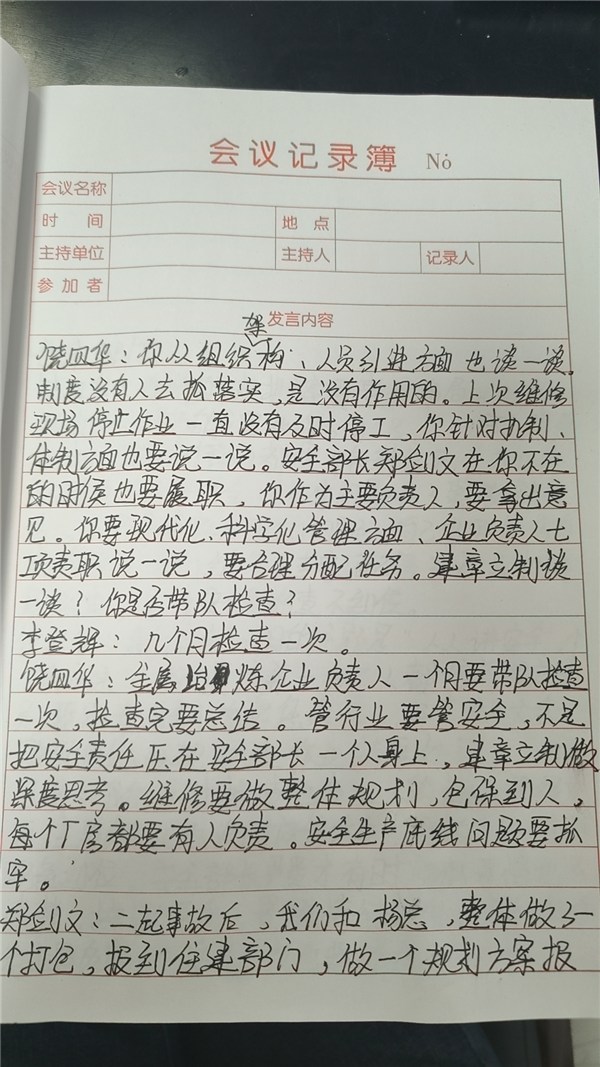 会议记录簿 No
会议名称
时 间 地 点
主持单位 主持人 记录人
参加者
发言内容
饶四华：你从组织架构、人员引进方面也谈一谈。
制度没有人去抓落实，是没有作用的。上次维修
现场停止作业一直没有及时停工，你针对机制、
体制方面也要说一说。安全部长郑剑文在你不在
的时候也要履职，你作为主要负责人，要拿出意
见。你要现代化、科学化管理方面、企业负责人七
项责职说一说，要合理分配任务。建章立制谈
一谈？你是否带队检查？
李登辉：几个月检查一次。
饶四华：金属冶炼企业负责人一个月要带队检查
一次，检查完要总结。管行业要管安全，不是
把安全责任压在安全部长一个人身上，建章立制做
深度思考。维修要做整体规划，包保到人，
每个厂房都要有人负责。安全生产底线问题要抓
牢。
郑剑文：二起事故后，我们和杨总，整体做了一
个打包，报到住建部门，做一个规划方案报